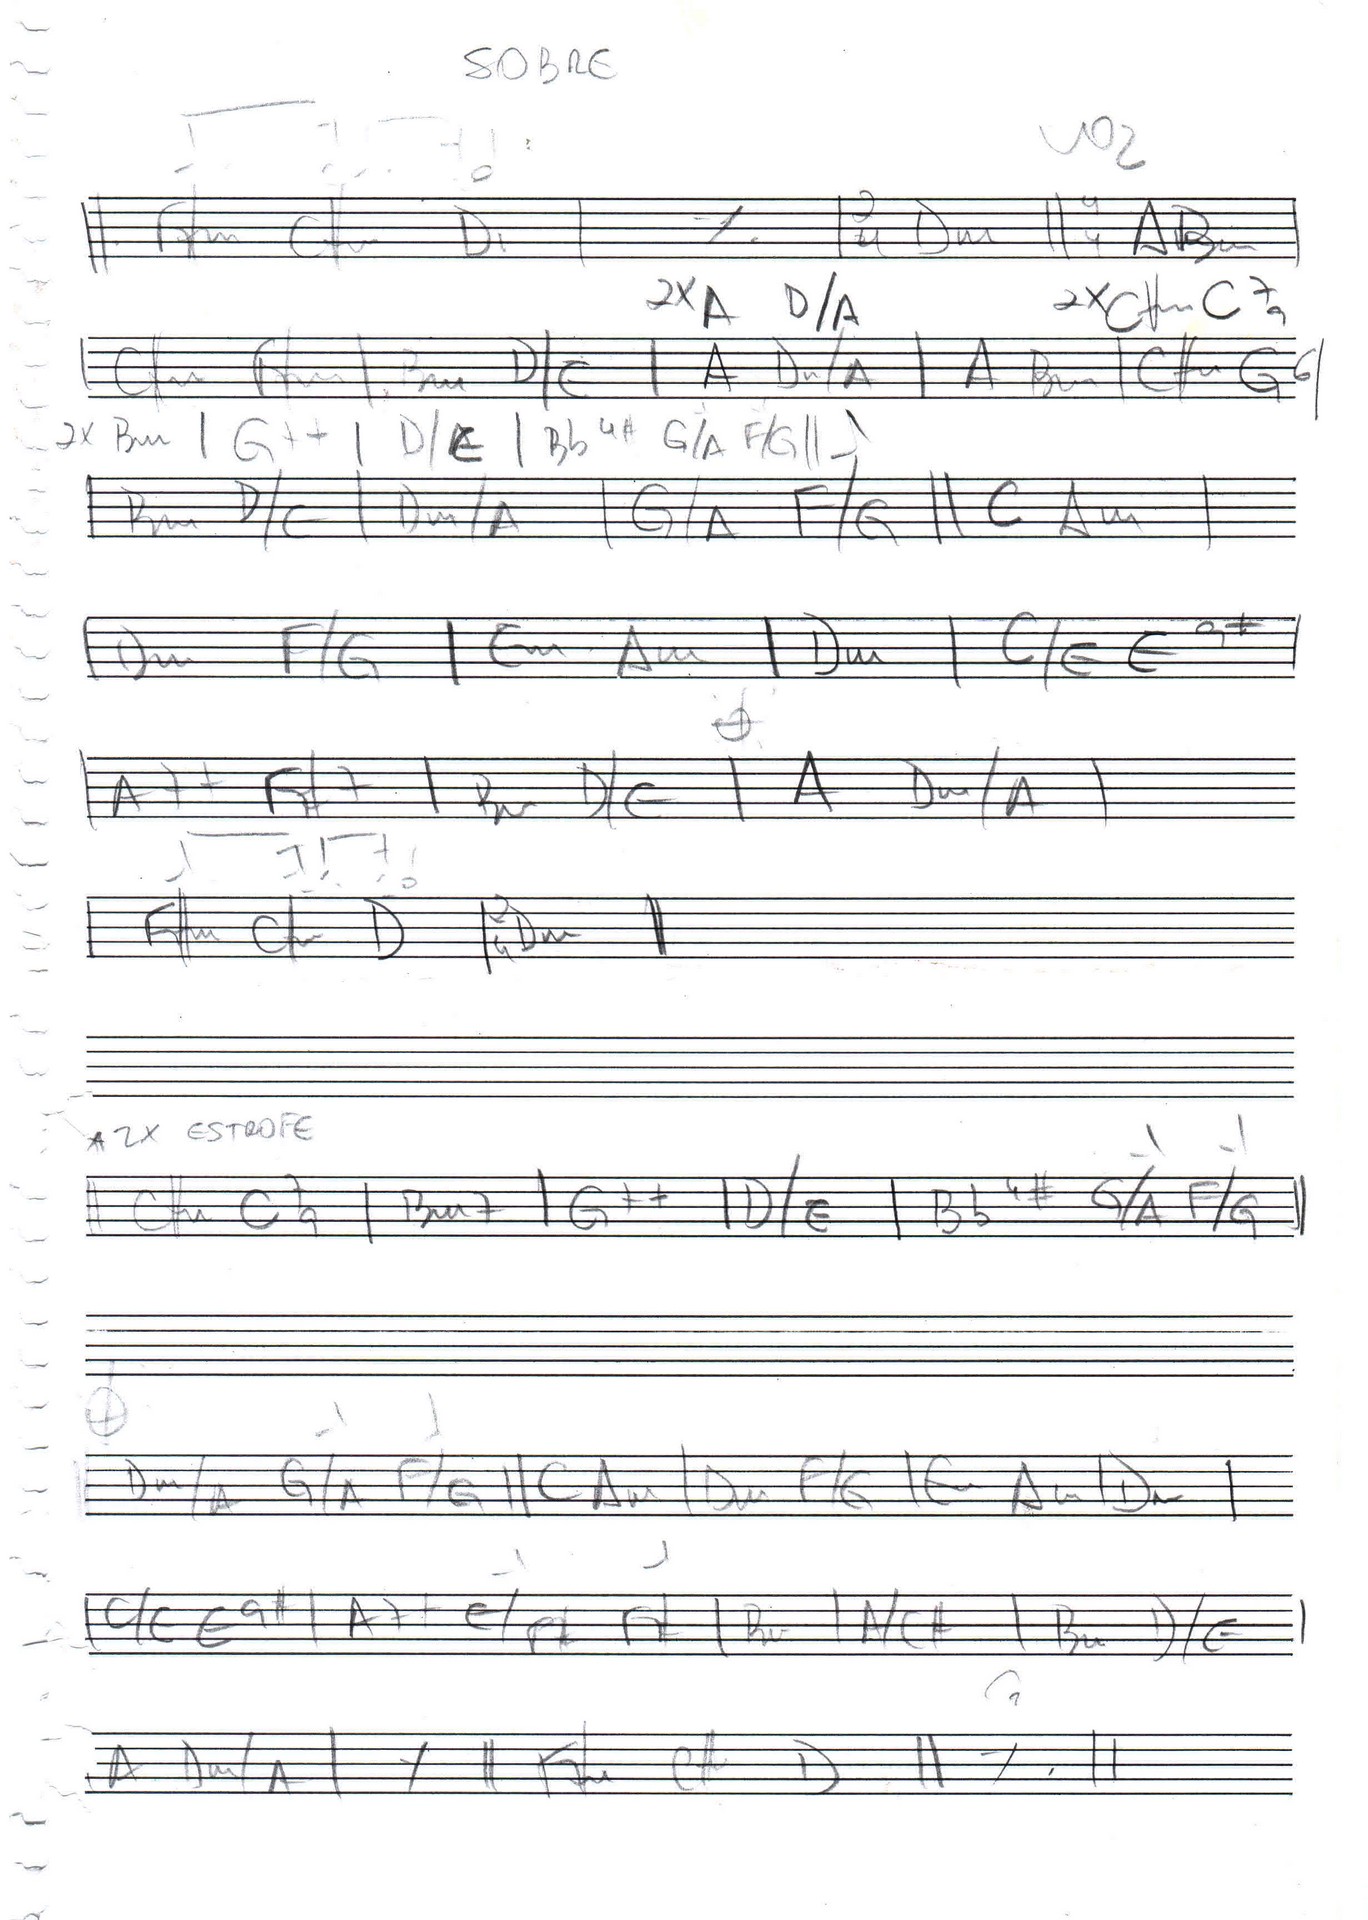 SOBRE
VOZ
F#m C#m D | ٪ | 2/4 Dm || 4/4 A Bm |
2x A D/A 2x C#m C7/9
| C#m F#m | Bm D/E | A Dm/A | A Bm | C#m G6 |
2x Bm | G7+ | D/E | Bb4# G/A F/G ||
| Bm D/E | Dm/A | G/A F/G || C Am |
| Dm F/G | Em Am | Dm | C/E E9+ |
| A7+ F#7 | Bm D/E | A Dm/A |
| F#m C#m D | 2/4 Dm ||
A 2x ESTROFE
|| C#m C7/9 | Bm7 | G7+ | D/E | Bb4# G/A F/G ||
| Dm/A G/A F/G || C Am | Dm F/G | Em Am | Dm |
| C/E E9# | A7+ E/F# F# | Bm | A/C# | Bm D/E |
A Dm/A | ٪ || F#m C# D || ٪ ||